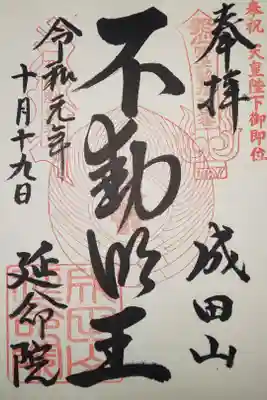 奉祝 天皇陛下御即位
奉拝
成田山
不動明王
令和元年
十月十九日
延命院